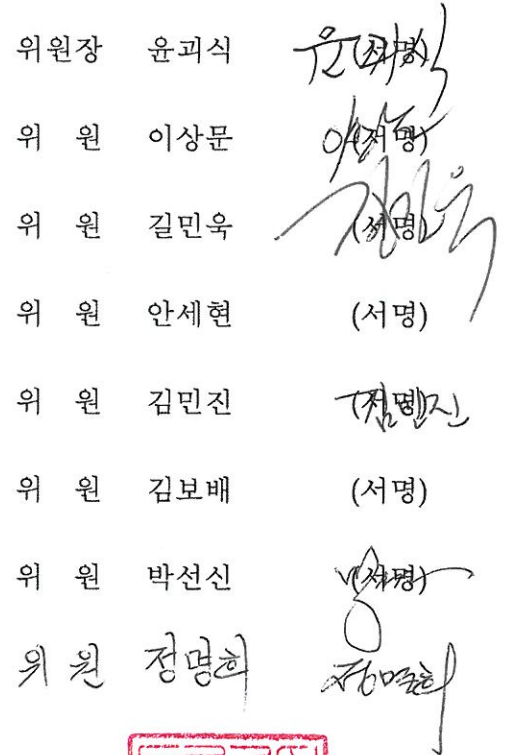 위원장 윤괴식 (서명)
위 원 이상문 (서명)
위 원 길민욱 (서명)
위 원 안세현 (서명)
위 원 김민진 (서명)
위 원 김보배 (서명)
위 원 박선신 (서명)
위 원 정명희 정명희